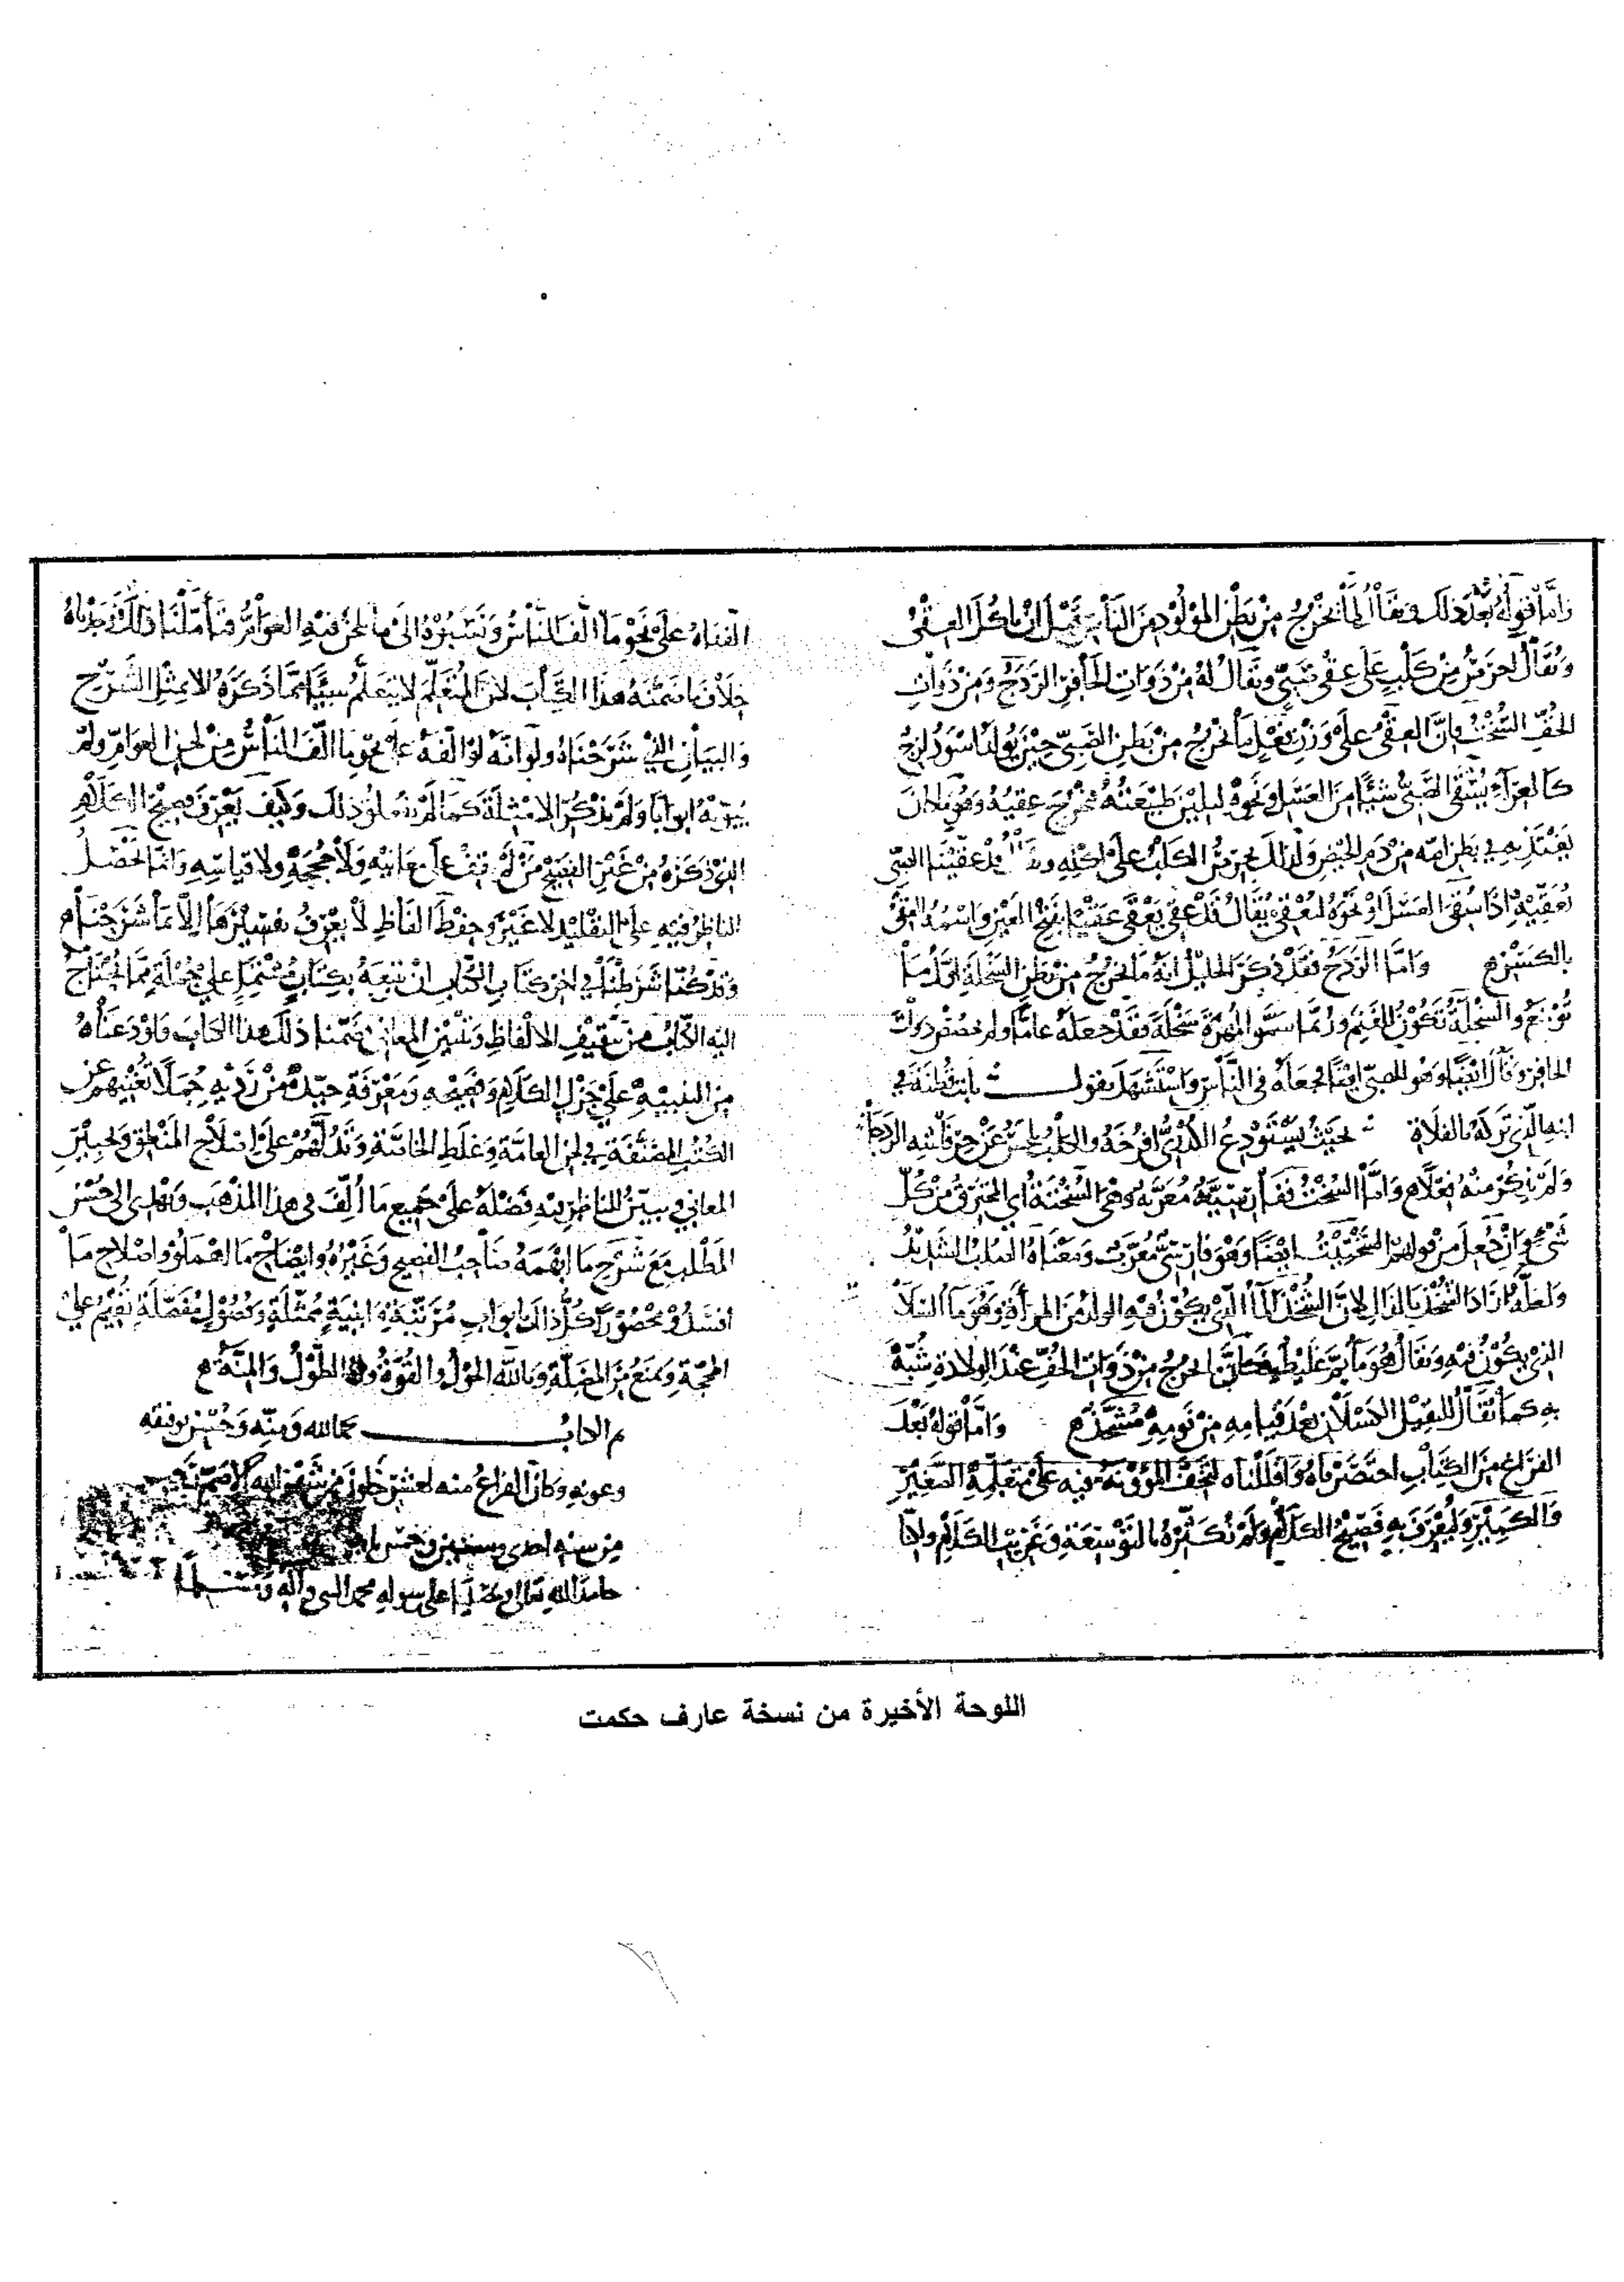 وأمّا قوله بعد ذلك ويقال لما يخرج من بطن المولود من الناس قبل أن يأكل العِقْيُ
ويقال أحرص من كلب على عقي صبيّ ويقال له من ذوات الحافر الرَّدَج ومن ذوات
الخفّ السُّخْت فإن العِقْيَ على وزن فِعْلٍ ما يخرج من بطن الصبيّ حين يولد أسود لزج
كالغراء يُسقى الصبيّ شيئًا من العسل ونحوه ليلين طبيعته فيخرج عقيه وهو ما كان
يغتذيه في بطن أمه من دم الحيض ولذلك يحرص الكلب على أكله وقد عقّينا الصبيّ
نعقّيه إذا سقي العسل أو نحوه ليعقي يقال قد عقى يعقي عقيًا بفتح العين واسمه العِقْيُ
بالكسر وأمّا الردج فقد ذكر الخليل أنه ما يخرج من بطن السخلة أول ما
توضع والسخلة تكون للغنم وربّما سمّوا المهرة سخلة فقد جعله عامًّا ولم يخصص ذوات
الحافر وقال أيضًا وهو للصبيّ أيضًا فجعله في الناس واستشهد بقول في
ابنه الذي تركه بالفلاة بحيث يستودع الكدريّ أفرخه والكلب يلحس عن حرفاسته الردجا
ولم يذكر منه فعلًا وأمّا السخت ففارسيّة معرّبة وهي السُّخْتة أي المحترق من كلّ
شيء وإن جعل من قولهم السختيت أيضًا وهو فارسيّ معرّب ومعناه الصلب الشديد
ولعلّه أراد السخد بالدال لأنّ السخد الماء الذي يكون فيه الولد من المرأة وهو ماء السلا
الذي يكون فيه ويقال هو ماء ثم غليظ يخرج من ذوات الخفّ عند الولادة شبّه
به كما يقال للثقيل الكسلان بعد قيامه من نومه مسخّد وأمّا قوله بعد
الفراغ من الكتاب اختصرناه وأقللناه لتخفّ المؤونة فيه على متعلّمه الصغير
والكبير وليُعرف به فصيح الكلام ولم نكثره بالتوسعة وغريب الكلام ولكنّا
ألفناه على نحو ما ألف الناس ونسبوه إلى ما يلحن فيه العوامّ فتأمّلنا ذلك فوجدناه
خلاف ما ضمّنه هذا الكتاب لأن المتعلّم لا يتعلّم شيئًا ممّا ذكره إلا بمثل الشرح
والبيان الذي شرحناه ولو أنه لو ألّفه على نحو ما ألّف الناس من لحن العوامّ ولم
يبوّبه أبوابًا ولم يذكر الأمثلة كما لم يفعلوا ذلك وكيف يعرف فصيح الكلام
الذي ذكره من غير الفصيح من لم يقف على معانيه ولا حججه ولا قياسه وإنّما يحصل
الناظر فيه على التقليد لا غير وحفظ ألفاظ لا يعرف تفسيرها إلا بما شرحناه
وقد كنّا شرطنا في آخر كتاب الكتّاب أن نتبعه بكتاب يشتمل على جملة ممّا يحتاج
إليه الكتّاب من تثقيف الألفاظ وتبيين المعاني فضمّنا ذلك هذا الكتاب وأودعناه
من التنبيه على جزل الكلام وفصيحه ومعرفة جيّده من رديه جملًا تغنيهم عن
الكتب المصنّفة في لحن العامّة وغلط الخاصّة وتدلّهم على إصلاح المنطق وتحبير
المعاني ويبيّن للناظر فيه فضله على جميع ما أُلّف في هذا المذهب ويهدي إلى حسن
المطلب مع شرح ما أبهمه صاحب الفصيح وغيره وإيضاح ما أهملوا وإصلاح ما
أفسدوا محصورًا كلّ ذلك بأبواب مرتّبة وأبنية ممثّلة وفصول مفصّلة تقيم على
المحجّة وتمنع من المضلّة وبالله الحول والقوّة وله الطول والمنّة
تم الكتاب بحمد الله ومنّه وحسن توفيقه
وعونه وكان الفراغ منه لعشر خلون من شهر الله الأصمّ
من سنة إحدى وسبعين وخمس
حامدًا لله تعالى ومصلّيًا على رسوله محمد النبي وآله ومسلّمًا
اللوحة الأخيرة من نسخة عارف حكمت